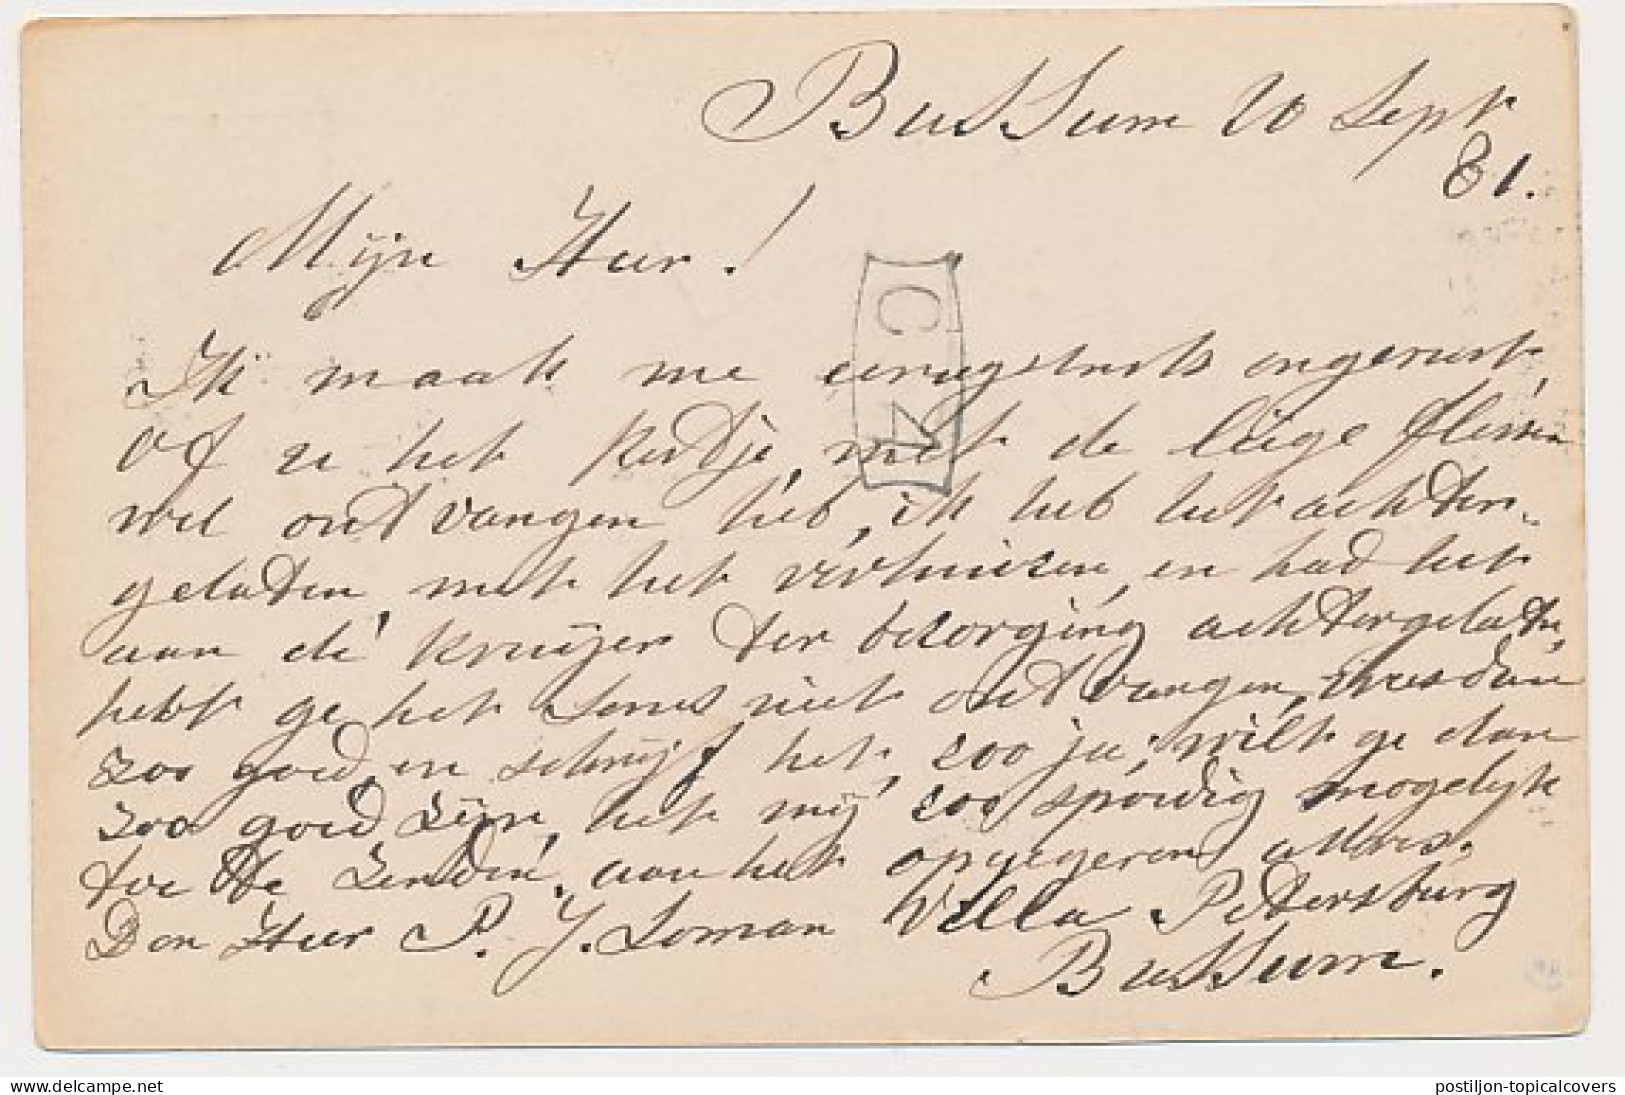 Bussum 20 Sept
81.
Mijn Heer!
C
Z
Ik maak me eenigsints ongerust,
of u het kistje, met de leege flessen
wel ontvangen heb, ik heb het achter-
geladen, met het verhuizen, en had het
aan de kruijer ter bezorging achtergelaten,
hebt ge het soms niet ontvangen, wees dan
zoo goed, en schrijf het, zoo ja, wilt ge dan
zoo goed zijn, het mij zoo spoedig mogelijk
toe te zenden, aan het opgegeven adres.
Den Heer P. J. Loman Villa Petersburg
Bussum.
delcampe.net
postiljon-topicalcovers